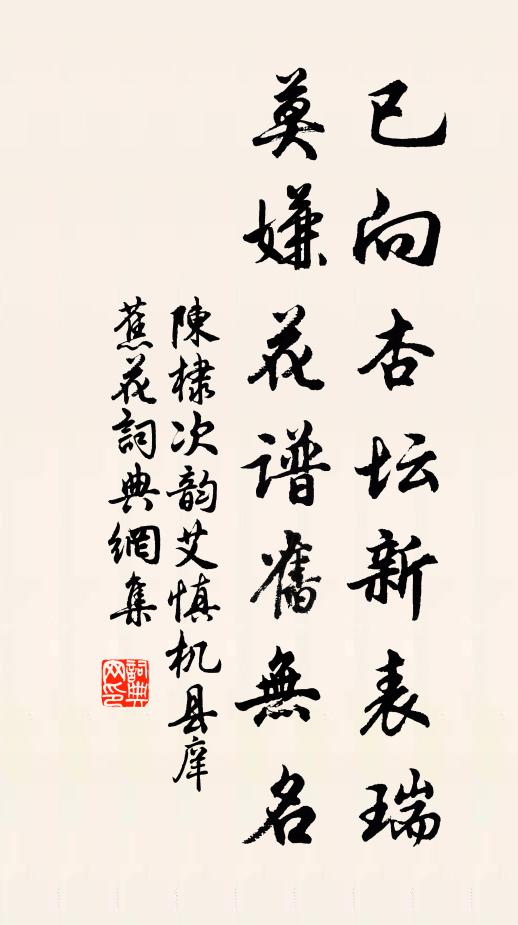 已向杏坛新表瑞
莫嫌花谱舊無名
陳棣次韵艾慎机县庠
蕉花詞典網集
詞典网印